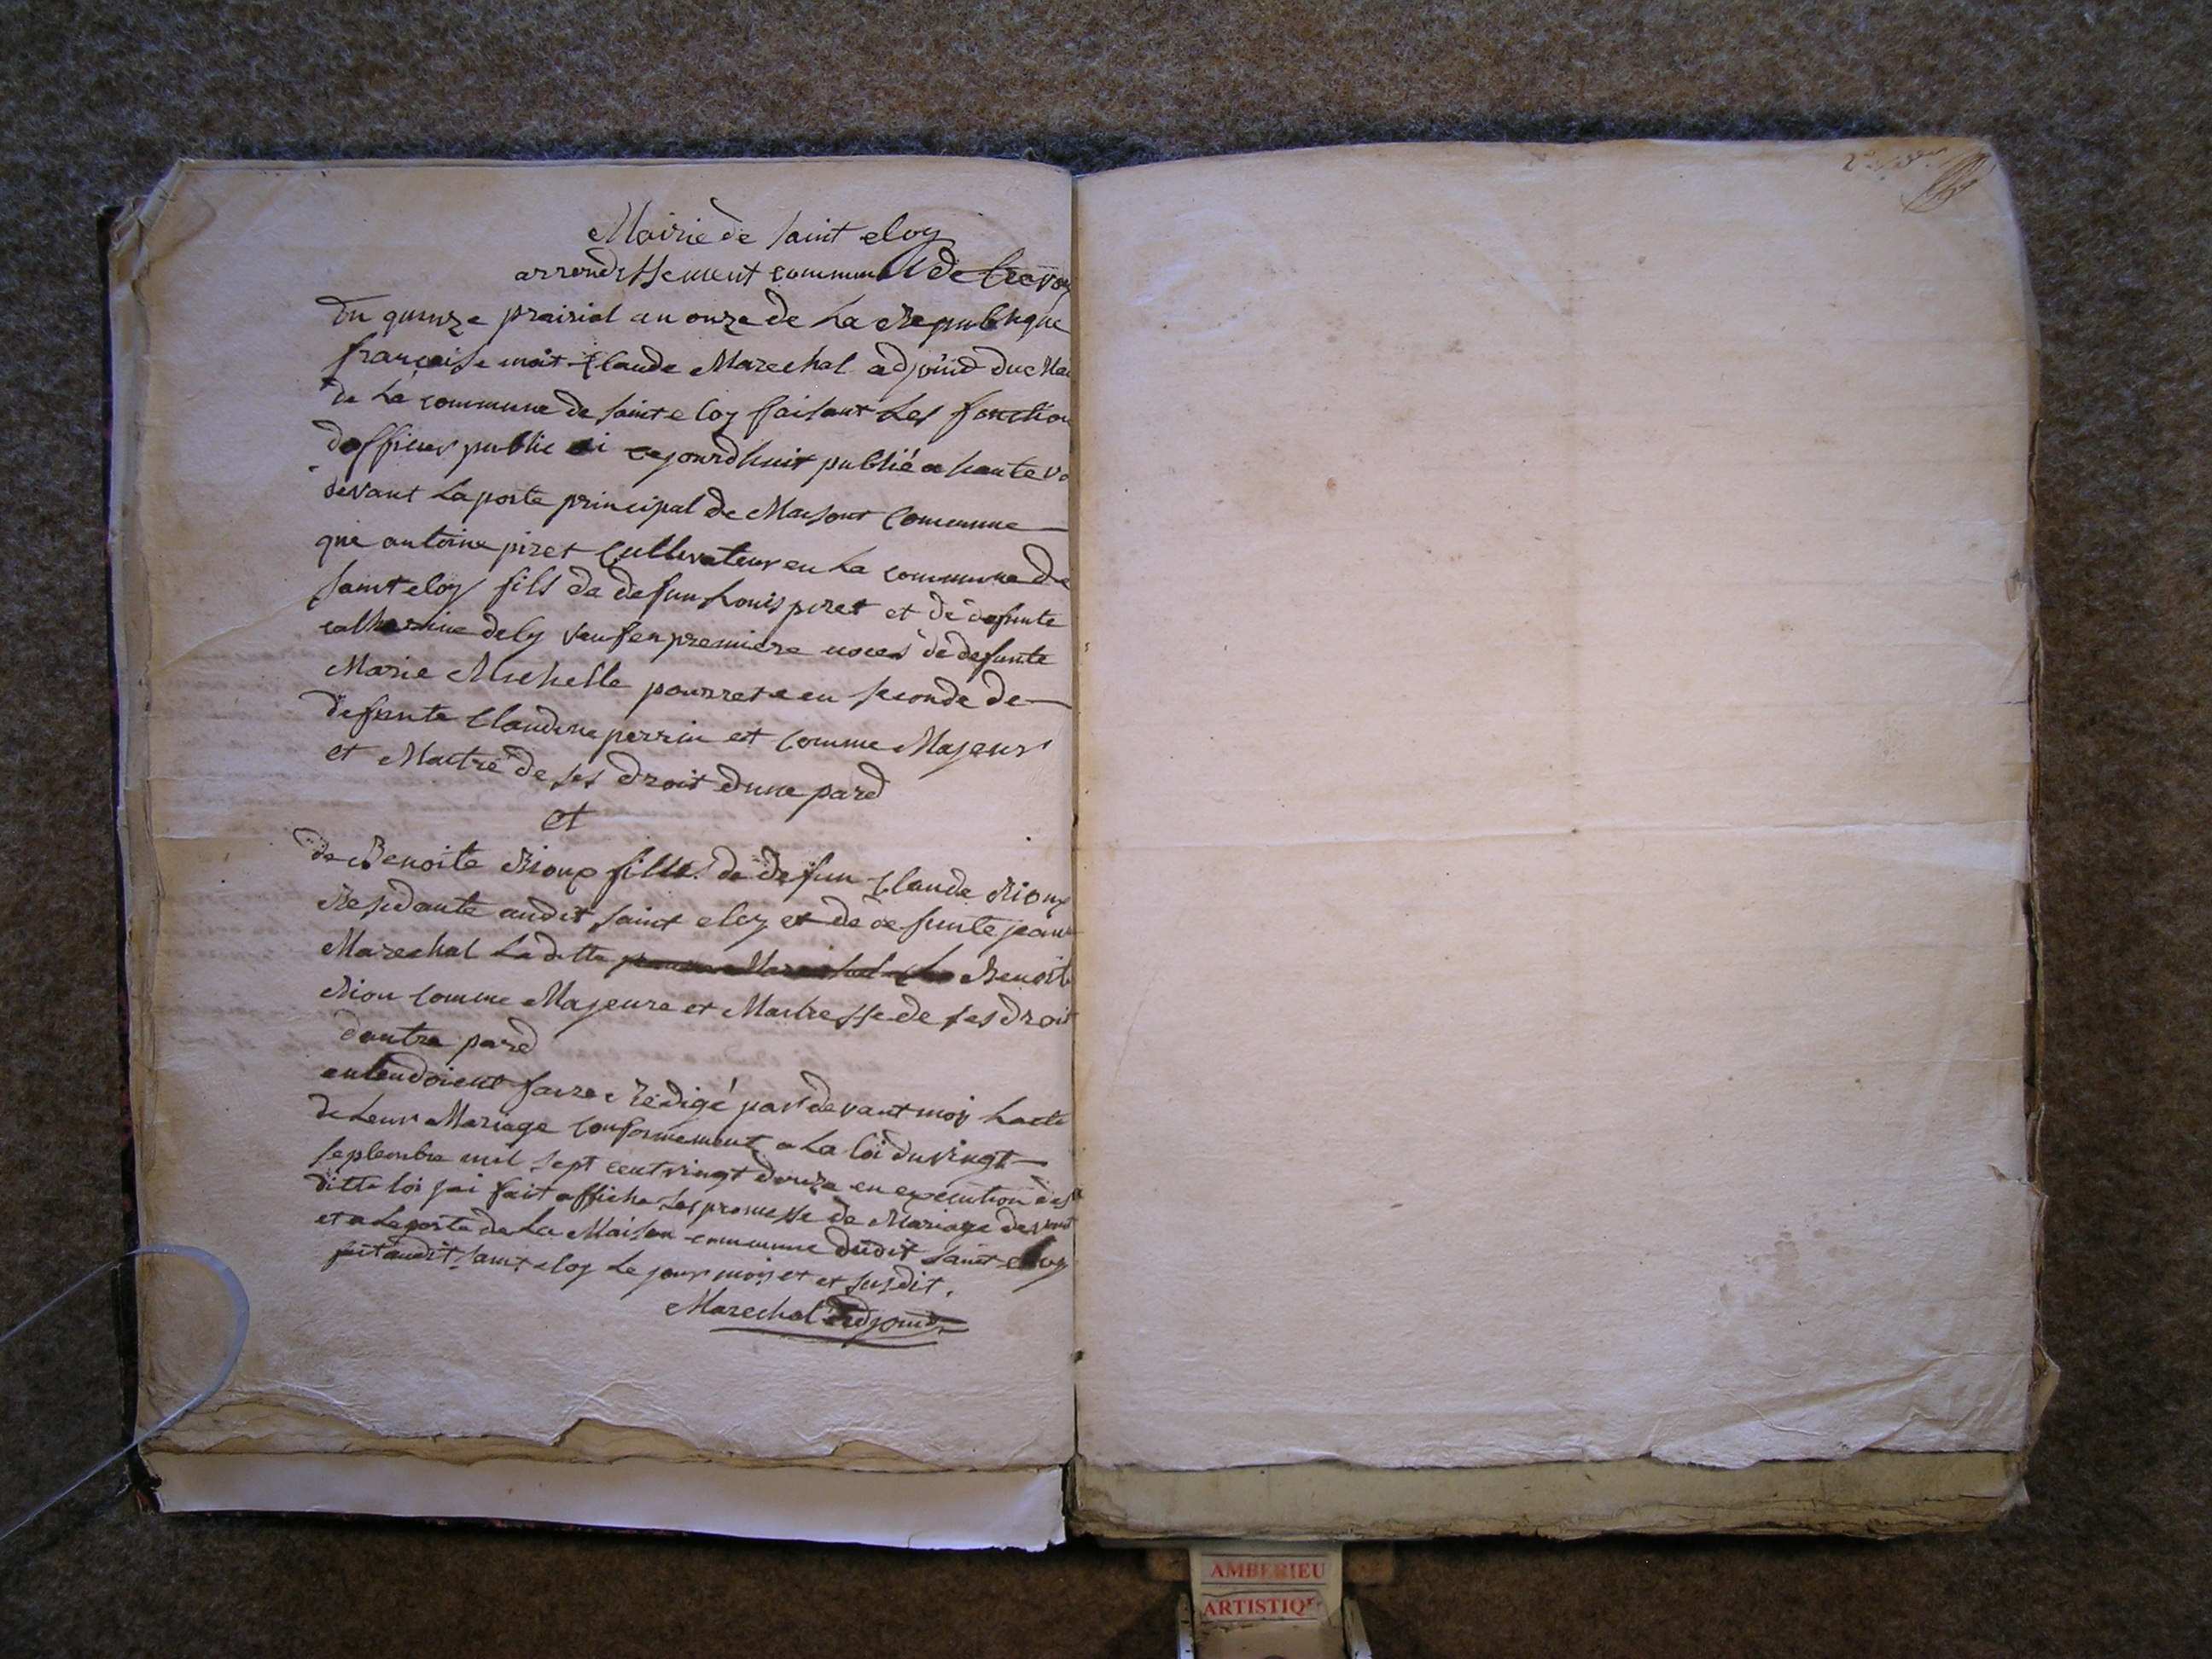 Mairie de saint eloy
arrondissement communal de trevoux
Du quinze prairial an onze de La Republique
francaise moit Claude Marechal adjoind du Mai
de La commune de saint eloy faisant Les fonction
dofficier public ai cejourdhuit publié a haute vo
devant La porte principal de Maisont Commune
que antoine piret Cultivateur en La commune de
saint eloy fils de defun Louis piret et de defunte
catherine dely veuf en premiere noces de defunte
Marie Michelle pourret e en seconde de
defunte Claudine perrin et comme Majeur
et Maitre de ses droit dune pard
et
de Benoite Rioux fille de defun Claude Rioux
Residante audit saint eloy et de defunte jeane
Marechal Laditte Benoite
Riou comme Majeure et Maitresse de ses droit
dautre pard
entendoient faire Redigé par devant moy Lacte
de Leur Mariage conformement a La loi du vingt
septembre mil sept cent vingt douze en execution de
ditte loi jai fait affiche Les promesse de Mariage devant
et a La porte de La Maison commune dudit saint eloy
fait audit saint eloy Le jour mois et et susdit.
Marechal adjoind
AMBERIEU
ARTISTIQ